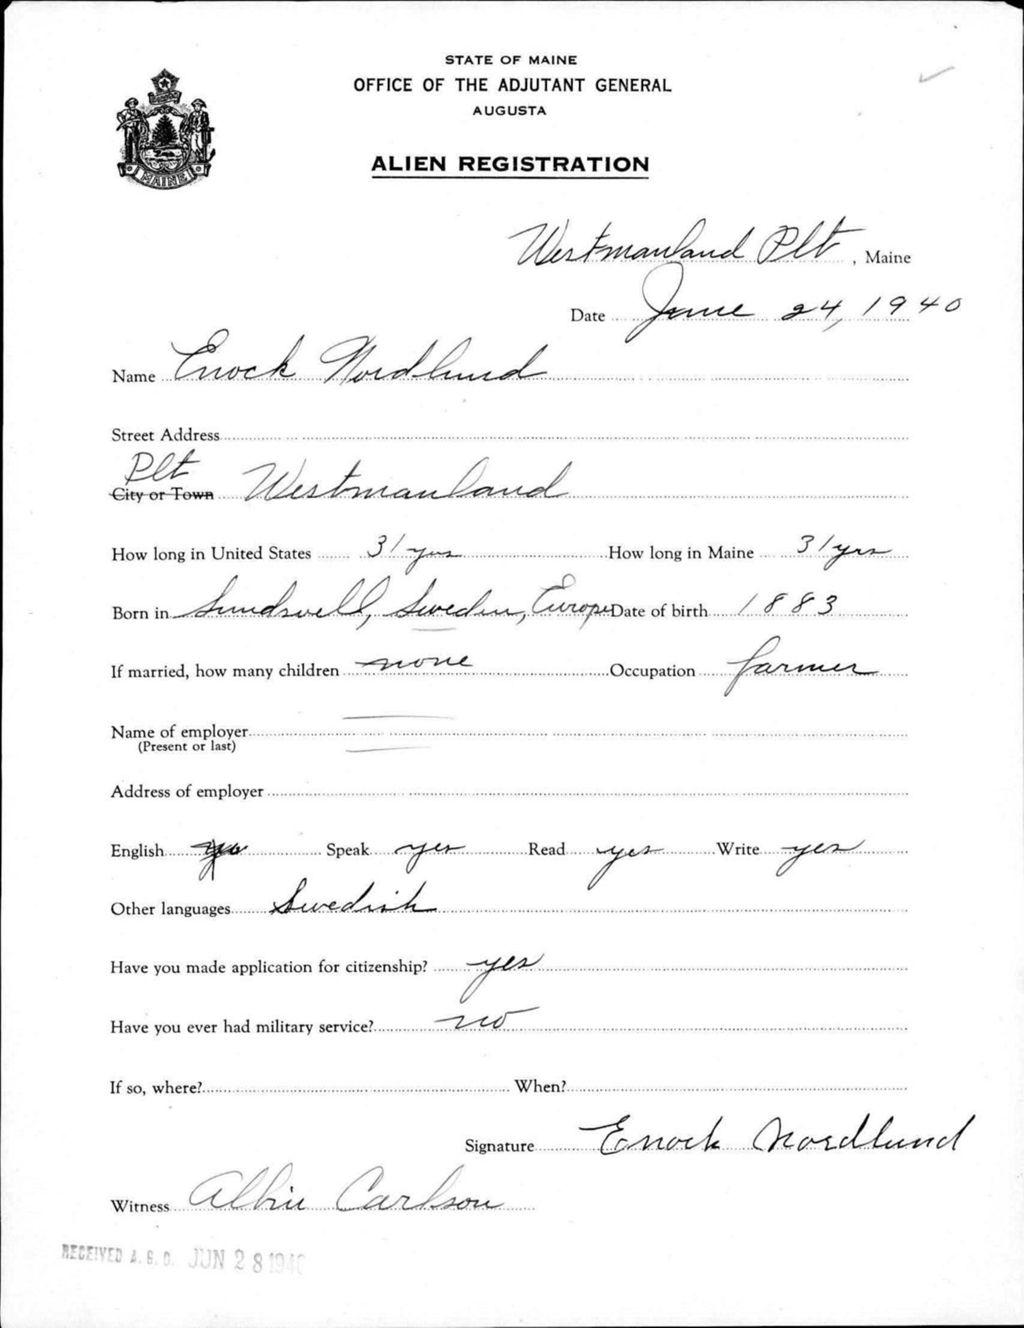 STATE OF MAINE
OFFICE OF THE ADJUTANT GENERAL
AUGUSTA
MAINE
ALIEN REGISTRATION
Westmanland Plt, Maine
Date June 24, 1940
Name Enock Nordlund
Street Address
Plt
City or Town Westmanland
How long in United States 31 yrs How long in Maine 31 yrs
Born in Sundsvell, Sweden, Europe Date of birth 1883
If married, how many children none Occupation farmer
Name of employer
(Present or last)
Address of employer
English yes Speak yes Read yes Write yes
Other languages Swedish
Have you made application for citizenship? yes
Have you ever had military service? no
If so, where? When?
Signature Enock Nordlund
Witness Carlson
RECEIVED A. G. O. JUN 28 1940